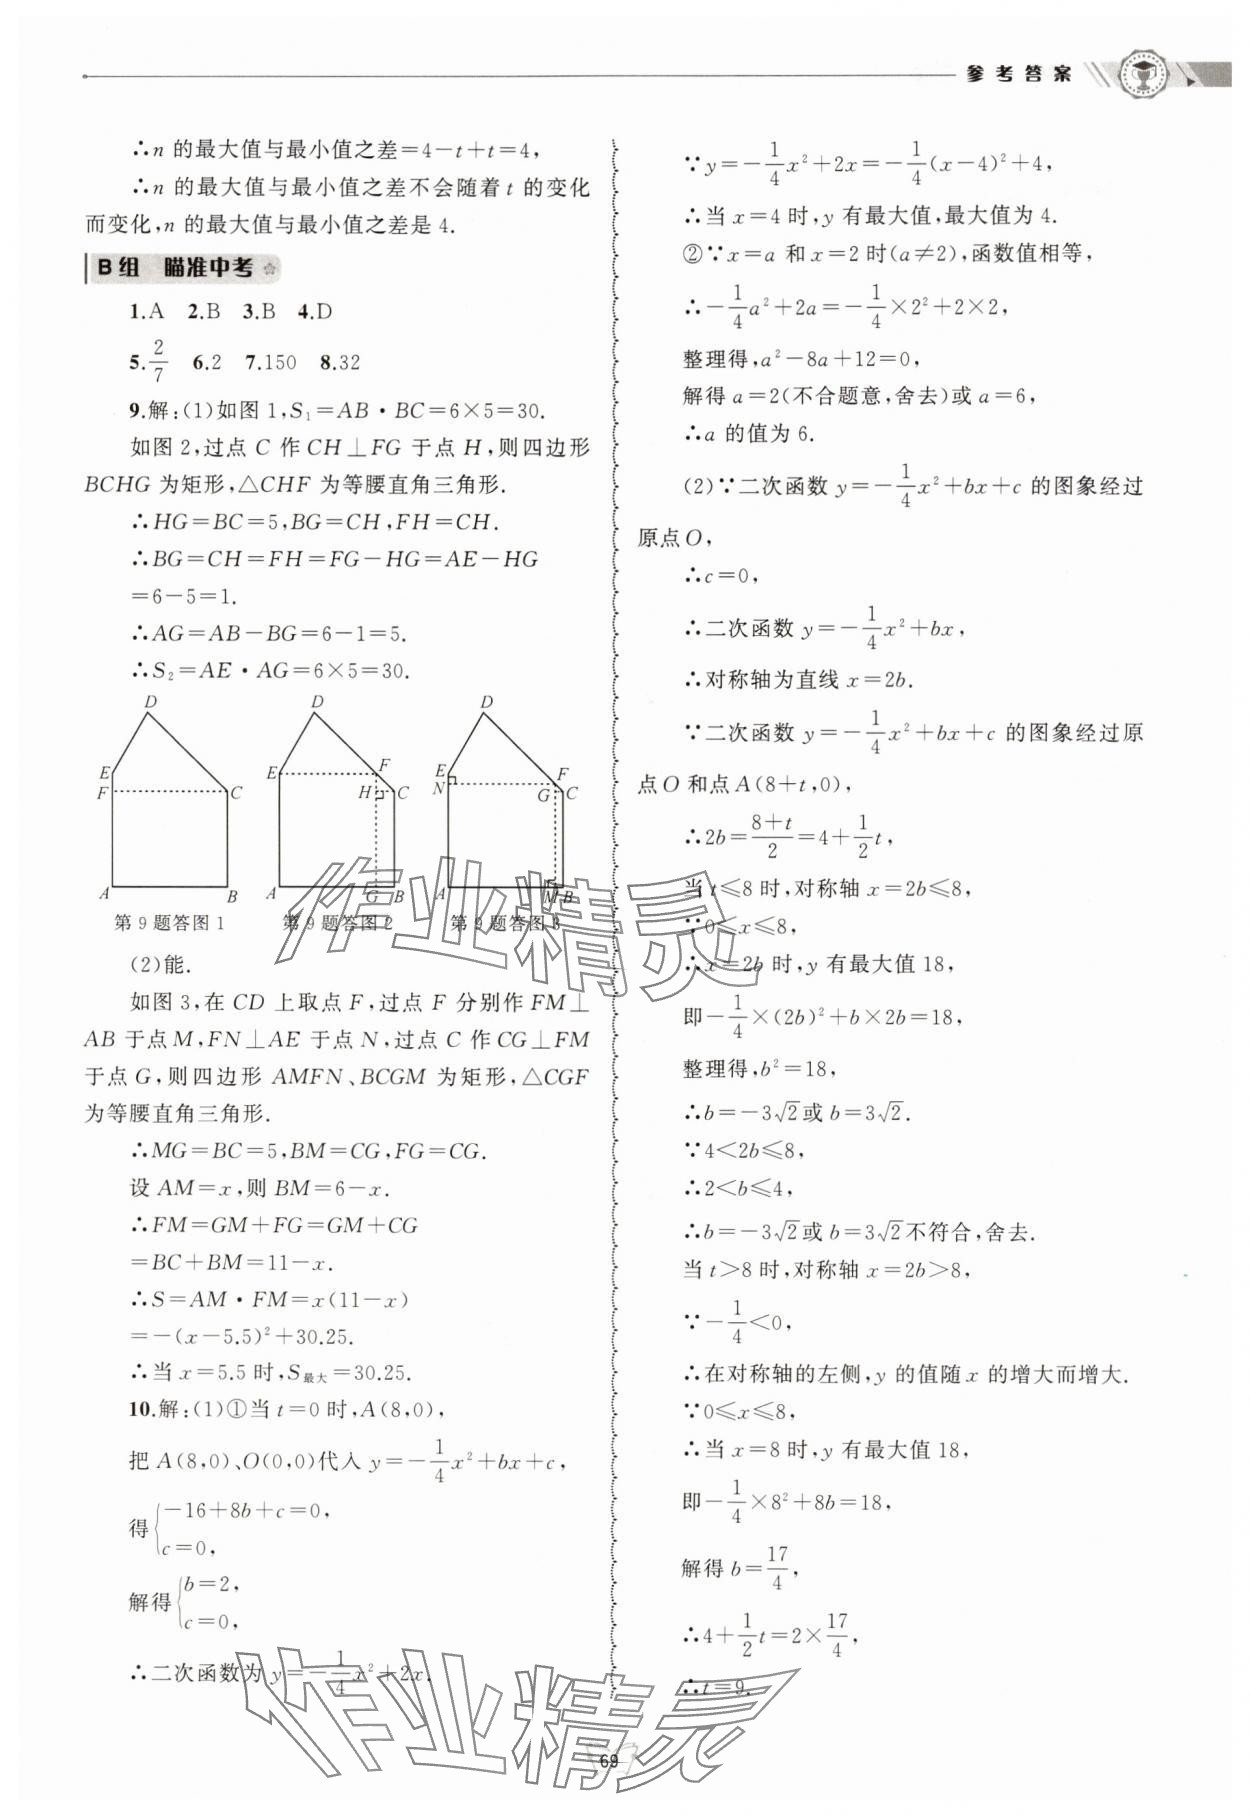 参考答案
∴n 的最大值与最小值之差=4-t+t=4,
∴n 的最大值与最小值之差不会随着 t 的变化
而变化,n 的最大值与最小值之差是 4.
B组 瞄准中考
1.A 2.B 3.B 4.D
5.2/7 6.2 7.150 8.32
9.解:(1)如图 1,S₁=AB·BC=6×5=30.
如图 2,过点 C 作 CH⊥FG 于点 H,则四边形
BCHG 为矩形,△CHF 为等腰直角三角形.
∴HG=BC=5,BG=CH,FH=CH.
∴BG=CH=FH=FG-HG=AE-HG
=6-5=1.
∴AG=AB-BG=6-1=5.
∴S₂=AE·AG=6×5=30.
D
E
F
C
A
B
第 9 题答图 1
D
E
F
H
C
A
G
B
第 9 题答图 2
D
E
N
F
G
C
A
M
B
第 9 题答图 3
(2)能.
如图 3,在 CD 上取点 F,过点 F 分别作 FM⊥
AB 于点 M,FN⊥AE 于点 N,过点 C 作 CG⊥FM
于点 G,则四边形 AMFN、BCGM 为矩形,△CGF
为等腰直角三角形.
∴MG=BC=5,BM=CG,FG=CG.
设 AM=x,则 BM=6-x.
∴FM=GM+FG=GM+CG
=BC+BM=11-x.
∴S=AM·FM=x(11-x)
=-(x-5.5)²+30.25.
∴当 x=5.5 时,S最大=30.25.
10.解:(1)①当 t=0 时,A(8,0),
把 A(8,0)、O(0,0)代入 y=-1/4x²+bx+c,
得{-16+8b+c=0,
c=0,
解得{b=2,
c=0,
∴二次函数为 y=-1/4x²+2x.
∵y=-1/4x²+2x=-1/4(x-4)²+4,
∴当 x=4 时,y 有最大值,最大值为 4.
②∵x=a 和 x=2 时(a≠2),函数值相等,
∴-1/4a²+2a=-1/4×2²+2×2,
整理得,a²-8a+12=0,
解得 a=2(不合题意,舍去)或 a=6,
∴a 的值为 6.
(2)∵二次函数 y=-1/4x²+bx+c 的图象经过
原点 O,
∴c=0,
∴二次函数 y=-1/4x²+bx,
∴对称轴为直线 x=2b.
∵二次函数 y=-1/4x²+bx+c 的图象经过原
点 O 和点 A(8+t,0),
∴2b=8+t/2=4+1/2t,
当 t≤8 时,对称轴 x=2b≤8,
∵0≤x≤8,
∴x=2b 时,y 有最大值 18,
即-1/4×(2b)²+b×2b=18,
整理得,b²=18,
∴b=-3√2或 b=3√2.
∵4<2b≤8,
∴2<b≤4,
∴b=-3√2或 b=3√2不符合,舍去.
当 t>8 时,对称轴 x=2b>8,
∵-1/4<0,
∴在对称轴的左侧,y 的值随 x 的增大而增大.
∵0≤x≤8,
∴当 x=8 时,y 有最大值 18,
即-1/4×8²+8b=18,
解得 b=17/4,
∴4+1/2t=2×17/4,
∴t=9.
作业精灵
作业精灵
69